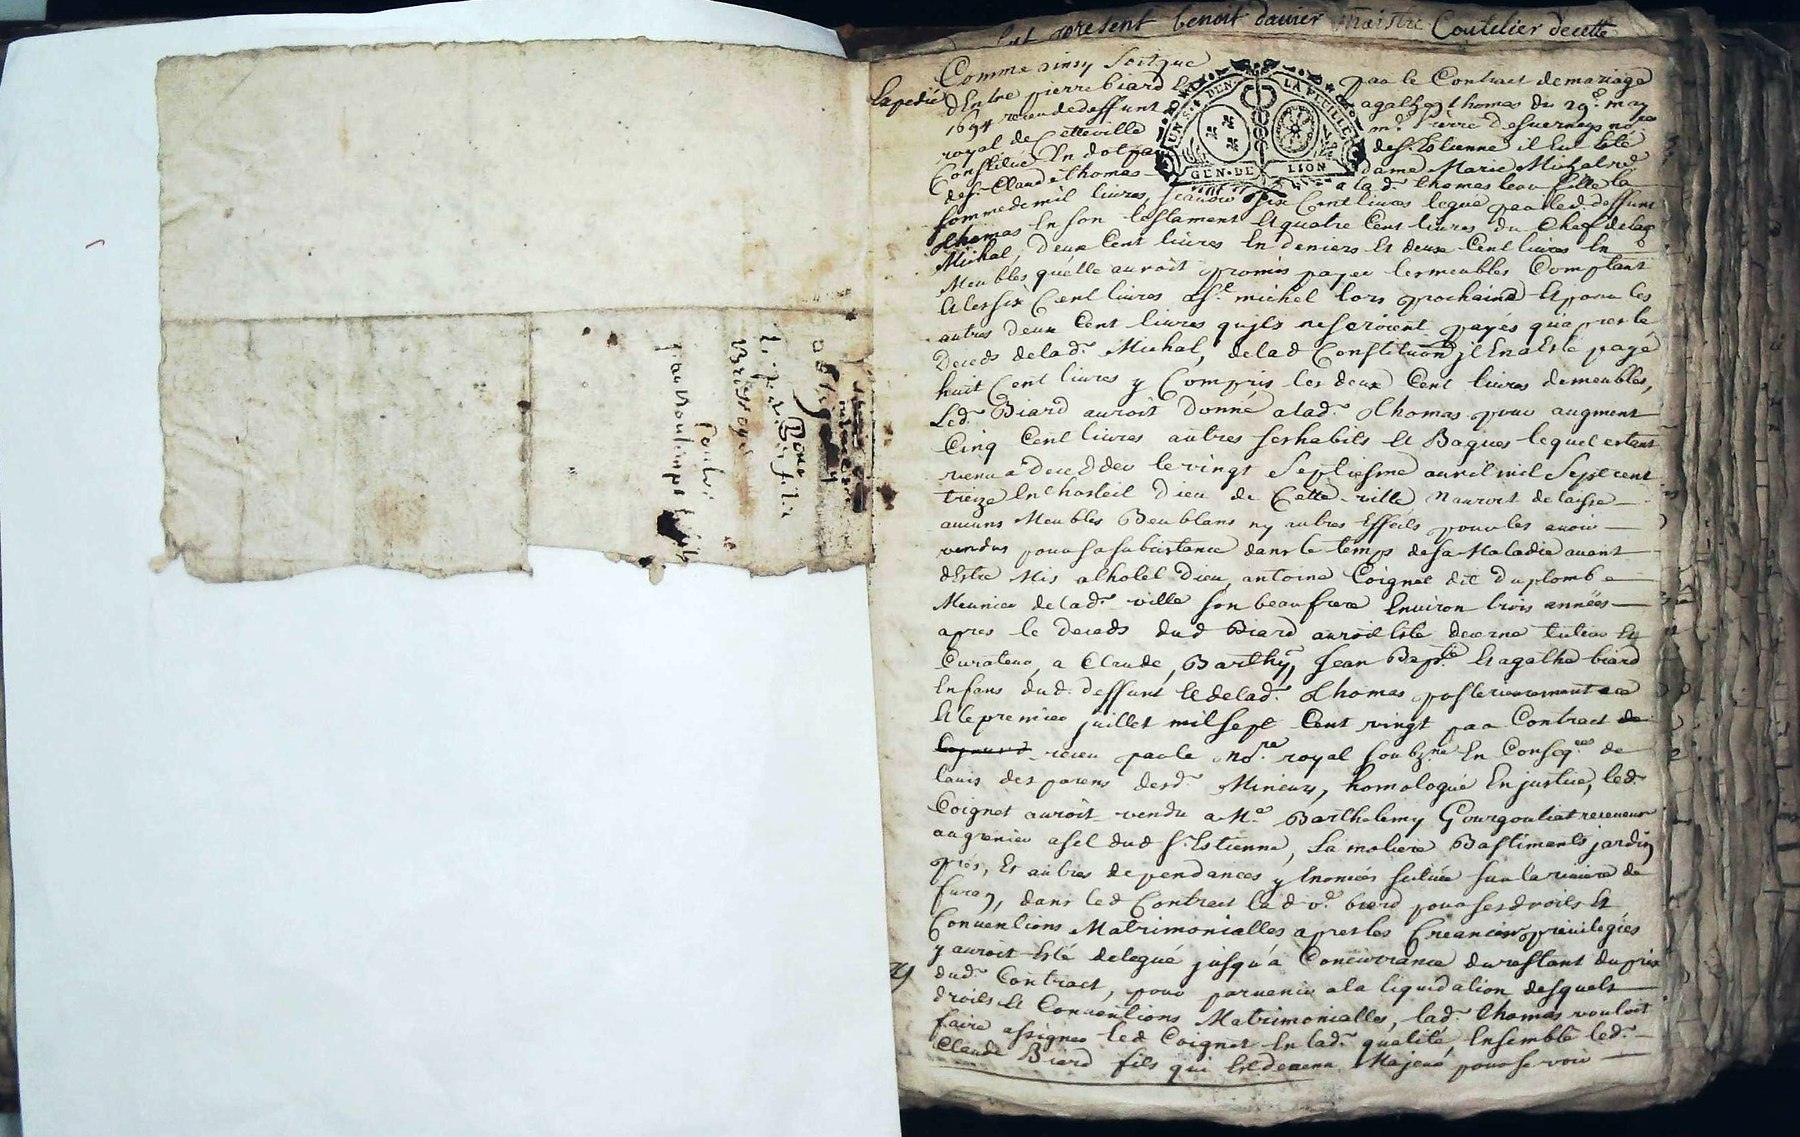 est present benoit davier Maistre Coutelier de cette
Comme ainsy Soit que par le Contract de mariage
d'Entre pierre biard Et agathe thomas du 29e may
1694 receu de deffunt me Pierre Desverneys nore
royal de Cette ville de st Estienne il Eut Esté
Constitué En dot par dame Marie Michal ve
de sr Claude Thomas a lad. thomas leur fille la
somme de mil livres, scavoir six Cent livres legué par led. deffunt
thomas En son testament Et quatre Cent livres du Chef de lad
Michal, deux Cent livres En deniers Et deux Cent livres En
Meubles qu'elle auroit promis payer les meubles Comptant
Et les six Cent livres a st michel lors prochaine Et pour les
autres deux Cent livres qu'ils ne seroient payés qu'apres le
Deceds de lad. Michal, de lad Constitution il En a Esté payé
huit Cent livres y Compris les deux Cent livres de meubles,
Led. Biard auroit donné a lad. Thomas pour augment
Cinq Cent livres autres ses habits Et Bagues lequel estant
venu a deceder le vingt Septiesme auril mil Sept cent
treize En l'hosteil Dieu de Cette ville N'auroit delaissé
aucuns Meubles Meublans ny autres Effects pour les avoir
vendus pour sa subsistance dans le temps de sa Maladie avant
d'Estre Mis a l'hotel Dieu, antoine Coignet dit Duplomb
Meunier de lad. ville son beau frere Environ trois années
apres le deceds dud Biard auroit Esté decerné tuteur Et
Curateur, a Claude, Barthy, Jean Bapte Et agathe biard
Enfans dud. deffunt Et de lad. Thomas posterieurement
Et le premier juillet mil sept Cent vingt par Contract de
receu par le nore royal soubzné En Conseqce de
l'avis des parens desd. Mineurs, homologué En justice, led.
Coignet auroit vendu a Me Barthelemy Gourgouliat receveur
au grenier a sel dud St Estienne, la moliere Bastiments jardin
pres, Et autres dependances y Enoncés située sur la riviere de
furen, dans led Contract lad ve biard pour ses droits Et
Conventions Matrimonialles apres les Creanciers privilegiés
y auroit Esté delegué jusqu'à Concurrance du restant du prix
dud. Contract, pour parvenir a la liquidation desquels
droits Et Conventions Matrimonialles, lad. thomas vouloit
faire assigner led Coignet En lad. qualité, Ensemble led.
Claude Biard fils qui Est devenu Majeur pour se voir
UN S. & DEN. LA FEUILLE
GEN. DE LION